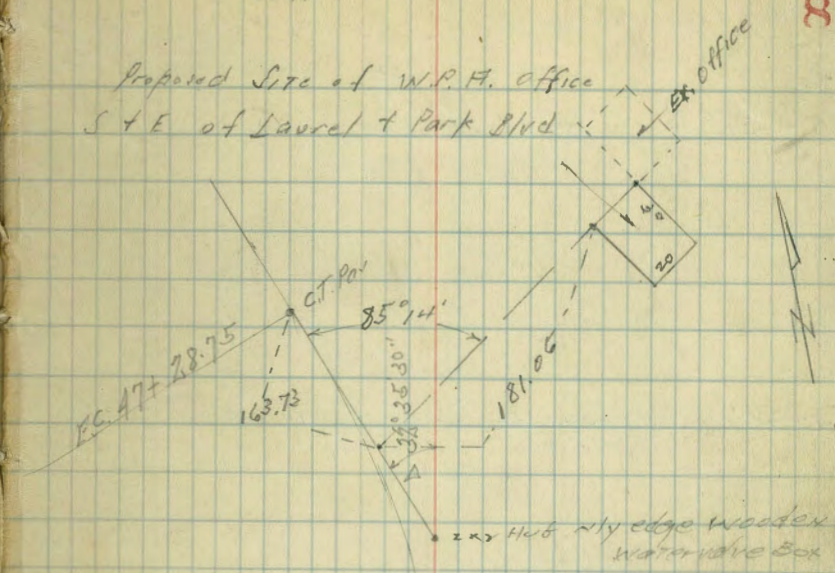 Proposed Site of W.P.A. Office
S + E of Laurel + Park Blvd
Ex. Office
40
20
C.T. Pav
85°14'
E.C. 47+28.75
163.73
181.06
35'30"
Δ
N
2x2 Hub N'ly edge wooden
watervalve Box